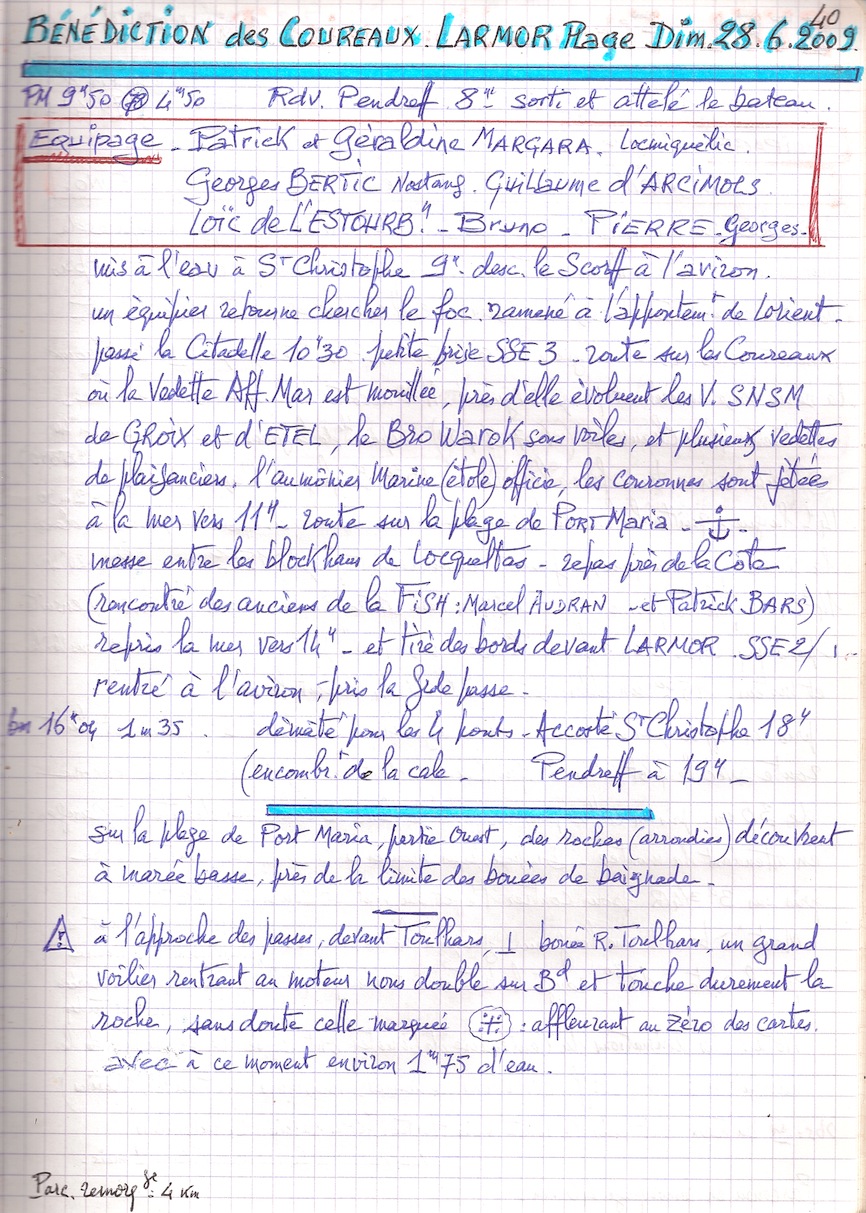 40
BÉNÉDICTION des COUREAUX. LARMOR Plage Dim. 28.6.2009
PM 9ʰ50 4ᵐ50 Rdv. Pendreff 8ʰ sorti et attelé le bateau.
Equipage - Patrick et Géraldine MARGARA. Locmiquélic.
Georges BERTIC Nostang. Guillaume d'ARCIMOLS
Loïc de L'ESTOURB.ⁿ - Bruno - PIERRE-Georges-
mis à l'eau à Sᵀ Christophe 9ʰ. desc. le Scorff à l'aviron.
un équipier retourne chercher le foc. ramené à l'appontemᵗ de Lorient -
passé la Citadelle 10ʰ30. petite brise SSE 3 - route sur les Coureaux
où la Vedette Aff. Mar est mouillée, près d'elle évoluent les V. SNSM
de GROIX et d'ETEL, le Bro Warok sous voiles, et plusieurs vedettes
de plaisanciers. l'aumônier Marine (étole) officie, les couronnes sont jetées
à la mer vers 11ʰ - route sur la plage de PORT Maria - ⚓ -
messe entre les blockhaus de Locqueltas - repas près de la Côte
(rencontré des anciens de la FISH : Marcel AUDRAN - et Patrick BARS)
repris la mer vers 14ʰ - et tiré des bords devant LARMOR. SSE 2/1..
rentré à l'aviron, - pris la Gde passe -
bm 16ʰ04 1m35. démâté pour les 4 ponts - Accosté Sᵀ Christophe 18ʰ
(encombrᵗ de la cale - Pendreff à 19ʰ -
sur la plage de Port Maria, partie Ouest, des roches (arrondies) découvrent
à marée basse, près de la limite des bouées de baignade -
⚠ à l'approche des passes, devant Toulhars, ⊥ bouée R. Toulhars, un grand
voilier rentrant au moteur nous double sur Bᵈ et touche durement la
roche, sans doute celle marquée : affleurant au Zéro des cartes.
avec à ce moment environ 1ᵐ75 d'eau.
Parc. remorq ᵍᵉ : 4 Km